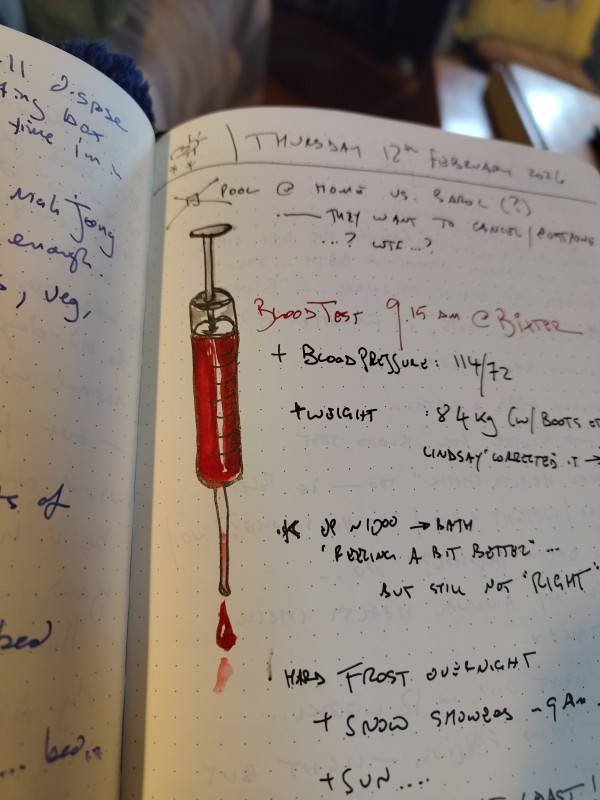 -ll dispose
box
time in
Mah Jong
enough.
, veg,
ts of
bed
... bed,
THURSDAY 12th FEBRUARY 2026
POOL @ HOME VS. BAROC (?)
— THEY WANT TO CANCEL/
...? WTF...?
BLOOD TEST 9.15 AM @ BIXTER
+ BLOOD PRESSURE: 114/72
+ WEIGHT : 84 Kg (W/ BOOTS
LINDSAY "CORRECTED" IT →
UP ~1000 → BATH
"FEELING A BIT BETTER" ...
BUT STILL NOT "RIGHT"
HARD FROST OVERNIGHT
+ SNOW SHOWERS ~9AM
+ SUN....